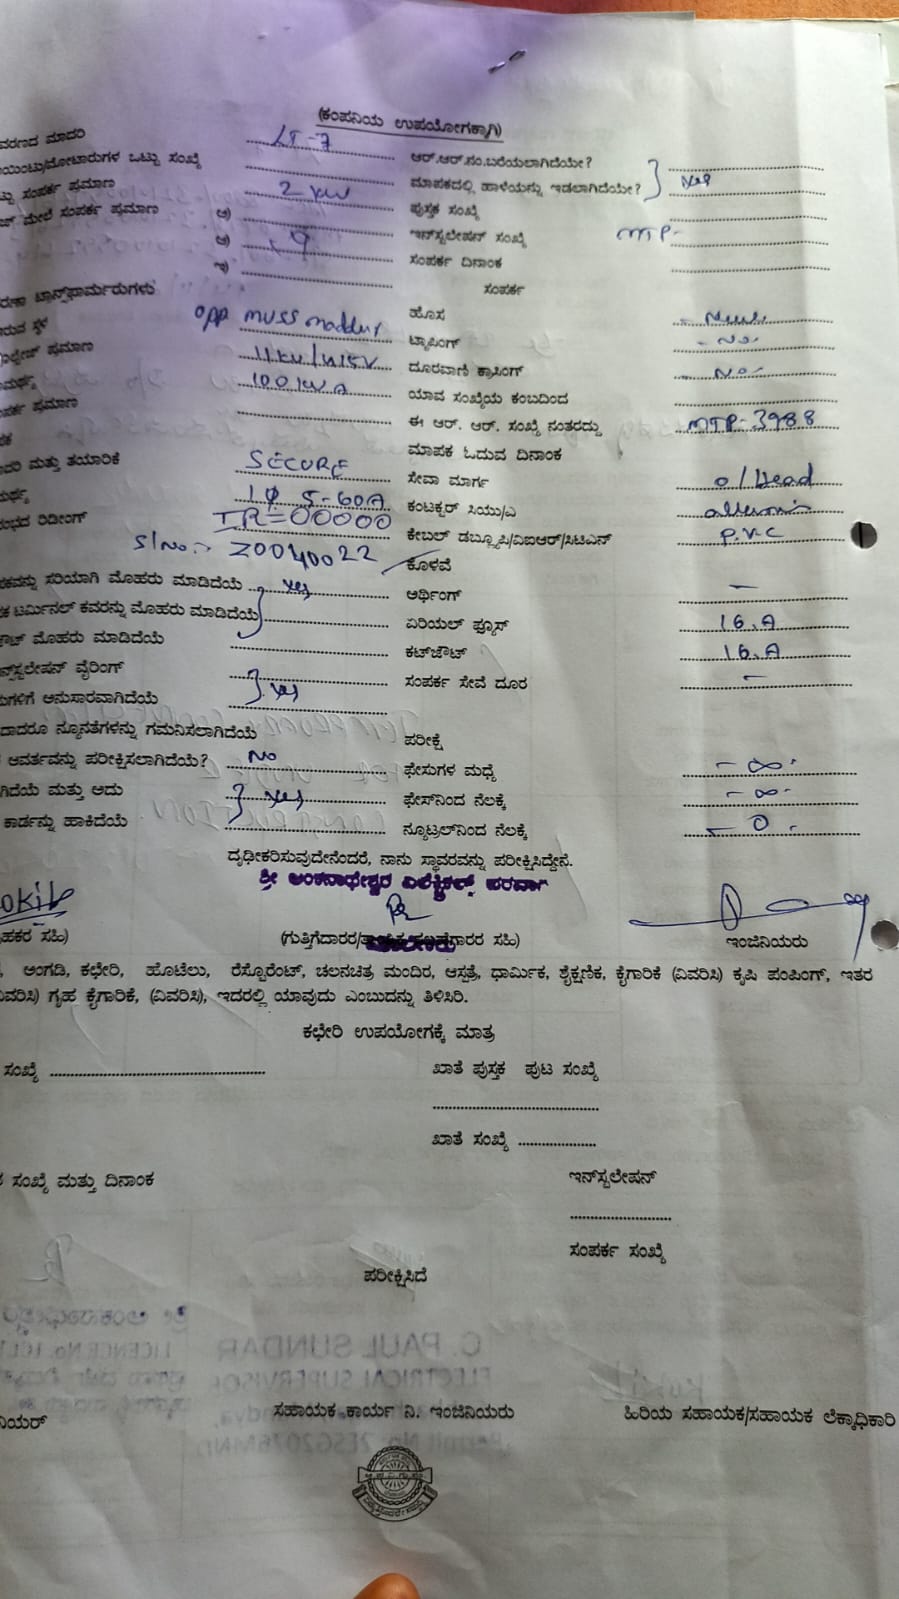 (ಕಂಪನಿಯ ಉಪಯೋಗಕ್ಕಾಗಿ)
ವರಣದ ಮಾದರಿ LT-7 ಆರ್.ಆರ್.ನಂ.ಬರೆಯಲಾಗಿದೆಯೇ?
ಯಿಂಟು/ಮೋಟಾರುಗಳ ಒಟ್ಟು ಸಂಖ್ಯೆ ಮಾಪಕದಲ್ಲಿ ಹಾಳೆಯನ್ನು ಇಡಲಾಗಿದೆಯೇ? } Yes
ಟ್ಟು ಸಂಪರ್ಕ ಪ್ರಮಾಣ 2 KW ಪುಸ್ತಕ ಸಂಖ್ಯೆ
ಮೇಲೆ ಸಂಪರ್ಕ ಪ್ರಮಾಣ ಅ) ಇನ್‌ಸ್ಟಲೇಷನ್ ಸಂಖ್ಯೆ MTP-
ಆ) 9 ಸಂಪರ್ಕ ದಿನಾಂಕ
ಇ) ಸಂಪರ್ಕ
ಟ್ರಾನ್ಸ್‌ಫಾರ್ಮರುಗಳು
ರುವ ಸ್ಥಳ opp MUSS maddur ಹೊಸ - New.
ಪ್ರಮಾಣ 11KV/415V ಟ್ಯಾಪಿಂಗ್ - No-
ಮರ್ಥ್ಯ 100 KVA ದೂರವಾಣಿ ಕ್ರಾಸಿಂಗ್ - No-
ಪರ್ಕ ಪ್ರಮಾಣ ಯಾವ ಸಂಖ್ಯೆಯ ಕಂಬದಿಂದ
ಈ ಆರ್. ಆರ್. ಸಂಖ್ಯೆ ನಂತರದ್ದು MTP-3988
ಮಾಪಕ ಓದುವ ದಿನಾಂಕ
ದರಿ ಮತ್ತು ತಯಾರಿಕೆ SECURE ಸೇವಾ ಮಾರ್ಗ o/Head
ಮರ್ಥ್ಯ 1ϕ 5-60A ಕಂಟಕ್ಟರ್ ಸಿಯು/ಎ
ಭದ ರಿಡಿಂಗ್ IR=00000 ಕೇಬಲ್ ಡಬ್ಲ್ಯೂಪಿ/ವಿಐಆರ್/ಸಿಟಿಎನ್ P.V.C
S/No:- Z0040022 ಕೊಳವೆ
ಕವನ್ನು ಸರಿಯಾಗಿ ಮೊಹರು ಮಾಡಿದೆಯೆ Yes ಅರ್ಥಿಂಗ್ -
ಕ ಟರ್ಮಿನಲ್ ಕವರನ್ನು ಮೊಹರು ಮಾಡಿದೆಯೆ ಏರಿಯಲ್ ಫ್ಯೂಸ್ 16.A
ಟ್ ಮೊಹರು ಮಾಡಿದೆಯೆ ಕಟ್‌ಔಟ್ 16.A
ನ್‌ಸ್ಟಲೇಷನ್ ವೈರಿಂಗ್ ಸಂಪರ್ಕ ಸೇವೆ ದೂರ -
ಗಳಿಗೆ ಅನುಸಾರವಾಗಿದೆಯೆ } Yes
ದಾದರೂ ನ್ಯೂನತೆಗಳನ್ನು ಗಮನಿಸಲಾಗಿದೆಯೆ ಪರೀಕ್ಷೆ
ಆವರ್ತವನ್ನು ಪರೀಕ್ಷಿಸಲಾಗಿದೆಯೆ? No ಫೇಸುಗಳ ಮಧ್ಯೆ - ∞ -
ಗಿದೆಯೆ ಮತ್ತು ಅದು ಫೇಸ್‌ನಿಂದ ನೆಲಕ್ಕೆ - ∞ -
ಕಾರ್ಡನ್ನು ಹಾಕಿದೆಯೆ } Yes ನ್ಯೂಟ್ರಲ್‌ನಿಂದ ನೆಲಕ್ಕೆ - 0 -
ದೃಢೀಕರಿಸುವುದೇನೆಂದರೆ, ನಾನು ಸ್ಥಾವರವನ್ನು ಪರೀಕ್ಷಿಸಿದ್ದೇನೆ.
ಶ್ರೀ ಅಂಕನಾಥೇಶ್ವರ ಎಲೆಕ್ಟ್ರಿಕಲ್ಸ್ ಪರವಾಗಿ
ಹಕರ ಸಹಿ) (ಗುತ್ತಿಗೆದಾರರ/ ಗಾರರ ಸಹಿ) ಇಂಜಿನಿಯರು
ಅಂಗಡಿ, ಕಛೇರಿ, ಹೊಟೆಲು, ರೆಸ್ಟೊರೆಂಟ್, ಚಲನಚಿತ್ರ ಮಂದಿರ, ಆಸ್ಪತ್ರೆ, ಧಾರ್ಮಿಕ, ಶೈಕ್ಷಣಿಕ, ಕೈಗಾರಿಕೆ (ವಿವರಿಸಿ) ಕೃಷಿ ಪಂಪಿಂಗ್, ಇತರ
ವಿವರಿಸಿ) ಗೃಹ ಕೈಗಾರಿಕೆ, (ವಿವರಿಸಿ), ಇದರಲ್ಲಿ ಯಾವುದು ಎಂಬುದನ್ನು ತಿಳಿಸಿರಿ.
ಕಛೇರಿ ಉಪಯೋಗಕ್ಕೆ ಮಾತ್ರ
ಸಂಖ್ಯೆ ಖಾತೆ ಪುಸ್ತಕ ಪುಟ ಸಂಖ್ಯೆ
ಖಾತೆ ಸಂಖ್ಯೆ
ಸಂಖ್ಯೆ ಮತ್ತು ದಿನಾಂಕ ಇನ್‌ಸ್ಟಲೇಷನ್
ಸಂಪರ್ಕ ಸಂಖ್ಯೆ
ಪರೀಕ್ಷಿಸಿದೆ
ನಿಯರ್ ಸಹಾಯಕ ಕಾರ್ಯ ನಿ. ಇಂಜಿನಿಯರು ಹಿರಿಯ ಸಹಾಯಕ/ಸಹಾಯಕ ಲೆಕ್ಕಾಧಿಕಾರಿ